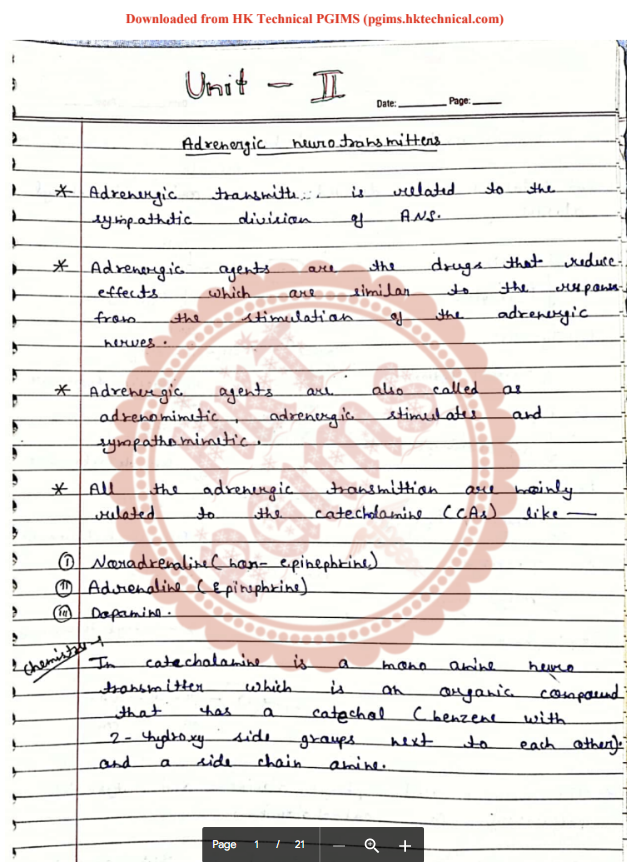 Downloaded from HK Technical PGIMS (pgims.hktechnical.com)
Unit - II
Date: Page:
Adrenergic neurotransmitters
* Adrenergic is related to the
sympathetic division of ANS.
* Adrenergic agents are the drugs that reduce
effects which are similar to the
from the stimulation of the adrenergic
nerves.
* Adrenergic agents are also called as
adrenomimetic, adrenergic stimulates and
sympathomimetic.
* All the adrenergic transmittion are mainly
related to the catecholamine (CAs) like —
(i) Noradrenaline (non-epinephrine)
(ii) Adrenaline (Epinephrine)
(iii) Dopamine.
In catecholamine is a mono amine neuro
transmitter which is an organic compound
that has a catechol (benzene with
2-hydroxy side groups next to each other)
and a side chain amine.
HKT
PGIMS
Page 1 / 21